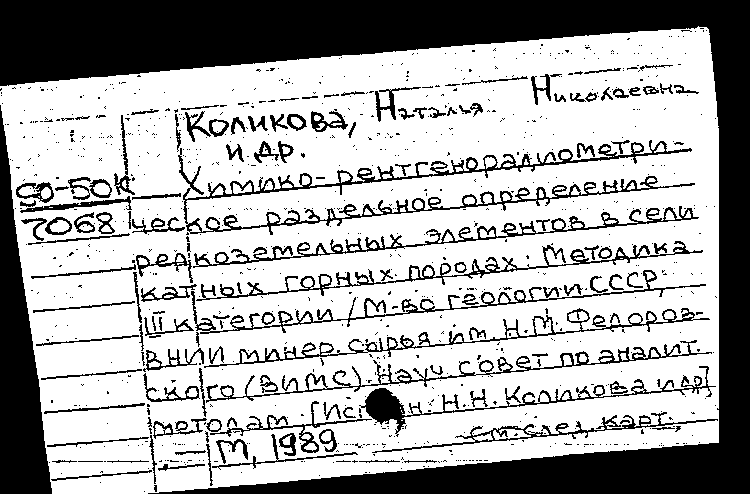 Коликова, Наталья Николаевна
и др.
50-50к Химико-рентгенорадиометри-
7068 ческое раздельное определение
редкоземельных элементов в сели
катных горных породах: Методика
III категории / М-во геологии СССР,
ВНИИ минер. сырья им. Н.М. Федоров-
ского (ВИМС). Науч. совет по аналит.
методам; [Н.Н. Коликова и др]
— М, 1989
см. след. карт.,